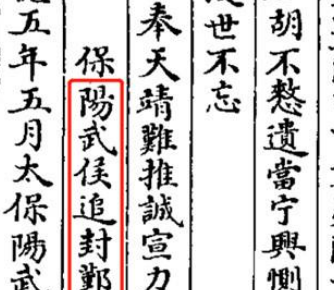 胡不憗遺當宁興惻
世不忘
奉天靖難推誠宣力
保陽武侯追封鄞
五年五月太保陽武